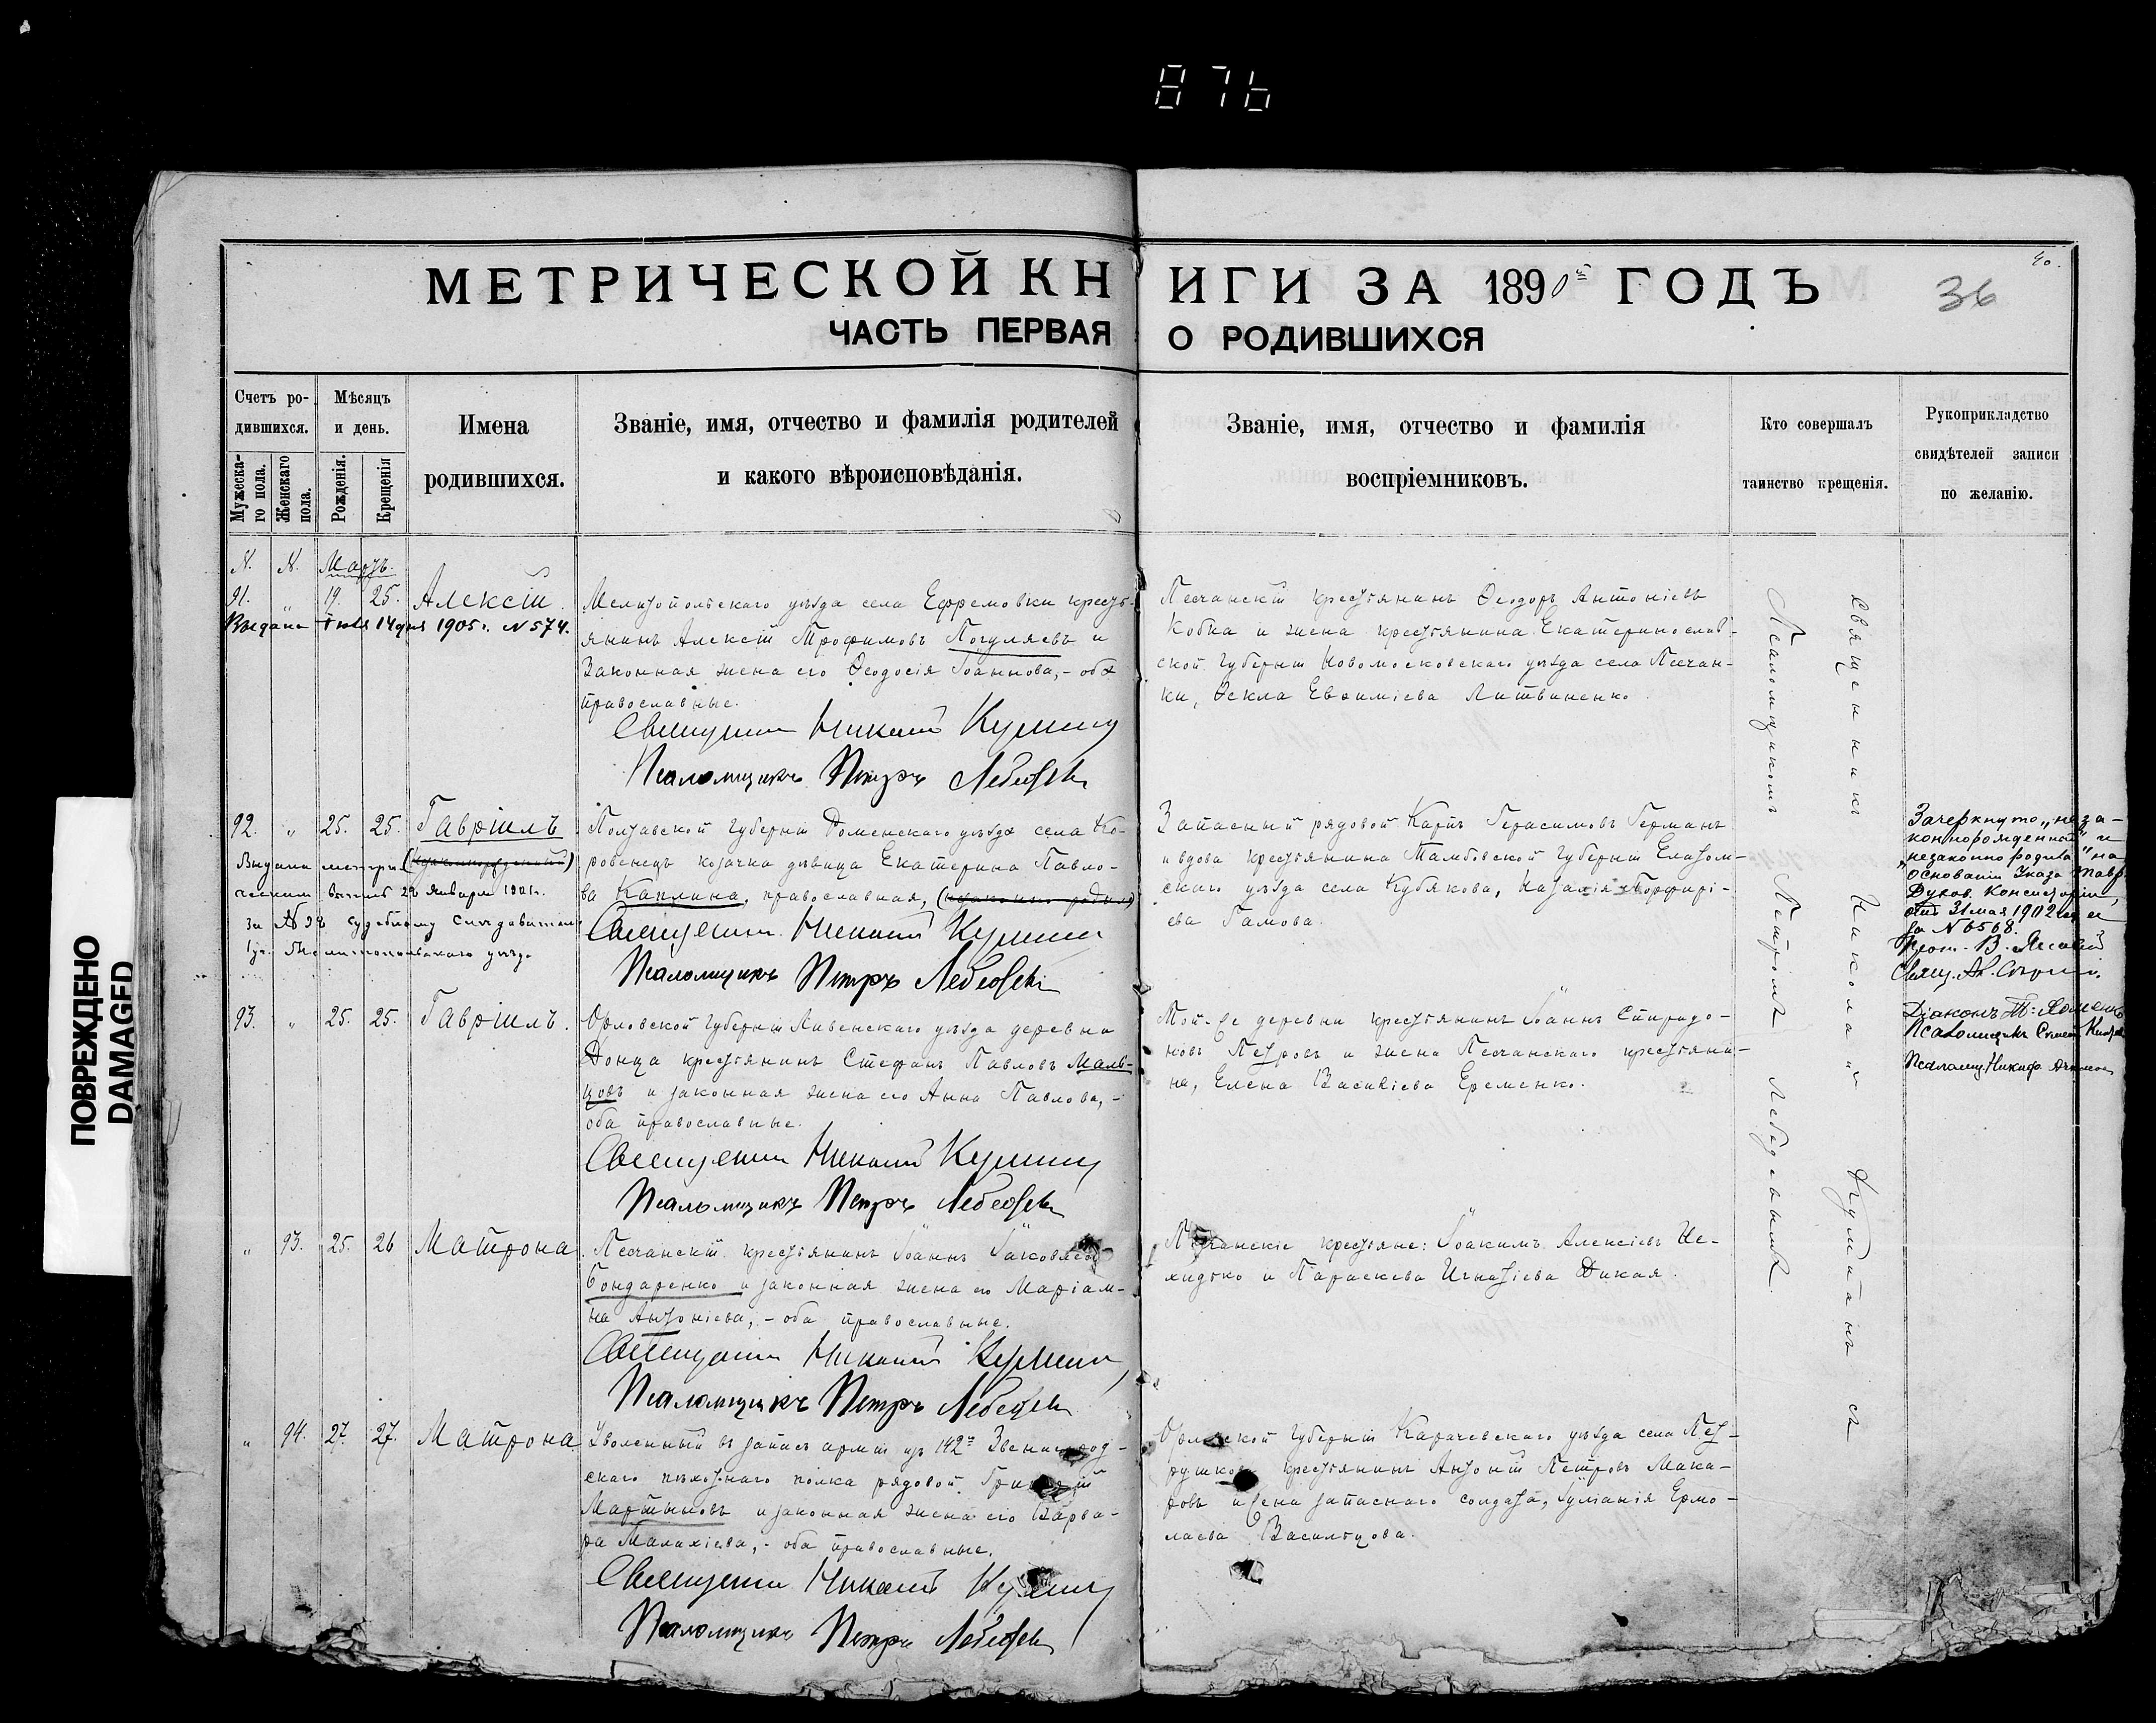 876
МЕТРИЧЕСКОЙ КНИГИ ЗА 1890й ГОДЪ
40.
36
ЧАСТЬ ПЕРВАЯ О РОДИВШИХСЯ
Счетъ родившихся.
Мужеска-
го пола.
Женскаго
пола.
Мѣсяцъ
и день.
Рожденія.
Крещенія
Имена
родившихся.
Званіе, имя, отчество и фамилія родителей
и какого вѣроисповѣданія.
Званіе, имя, отчество и фамилія
воспріемниковъ.
Кто совершалъ
таинство крещенія.
Рукоприкладство
свидѣтелей записи
по желанію.
N. N. Мартъ.
91. " 19. 25. Алексій.
Выдана Іюля 14 дня 1905 г. N 574.
Мелитопольскаго уѣзда села Ефремовки кресть-
янинъ Алексій Трофимовъ Погуляевъ и
законная жена его Ѳеодосія Іоаннова, - оба
православные.
Священникъ Николай
Псаломщикъ Петръ Лебедевъ
Песчанскій крестьянинъ Ѳеодоръ Антоніевъ
Кобка и жена крестьянина Екатеринослав-
ской губерніи Новомосковскаго уѣзда села Песчан-
ки, Ѳекла Евѳиміева Литвиненко.
92. " 25. 25. Гавріилъ
(незаконнорожденный)
Выдана метри-
ческая выпись 28 Января 1901 г.
за № 28 судебному Слѣдователю
1 уч. Мелитопольскаго уѣзда
Полтавской губерніи Роменскаго уѣзда села Ко-
ровенецъ козачка дѣвица Екатерина Павло-
ва Каплина, православная,
Священникъ Николай
Псаломщикъ Петръ Лебедевъ
Запасный рядовой Карпъ Герасимовъ Германъ
и вдова крестьянина Тамбовской губерніи Елатом-
скаго уѣзда села Кубякова, Наталія Порфирі-
ева Гамова.
Зачеркнуто „неза-
коннорожденный" и
„незаконно родила" на
основаніи Указа Тавр.
Духов. Консисторіи,
отъ 31 мая 1902 года
за N 6568.
Прот. В.
Свящ.
Діаконъ
Псаломщикъ
Псаломщ. Никифо.
93. " 25. 25. Гавріилъ.
Орловской губерніи Ливенскаго уѣзда деревни
Донца крестьянинъ Стефанъ Павловъ Маль-
цовъ и законная жена его Анна Павлова, -
оба православные.
Священникъ Николай
Псаломщикъ Петръ Лебедевъ
Той-же деревни крестьянинъ Іоаннъ Спиридо-
новъ Петровъ и жена Песчанскаго крестьяни-
на, Елена Василіева Еременко.
" 93. 25. 26 Матрона
Песчанскій крестьянинъ Іоаннъ Іаковлевъ
Бондаренко и законная жена его Маріам-
на Антоніева, - оба православные.
Священникъ Николай
Псаломщикъ Петръ Лебедевъ
Песчанскіе крестьяне: Іоакимъ Алексіевъ Не-
хидько и Параскева Игнатіева Дикая.
" 94. 27. 27. Матрона
Уволенный въ запасъ арміи изъ 142го Звенигород-
скаго пѣхотнаго полка рядовой Григорій
Мартыновъ и законная жена его Варва-
ра Малахіева, - оба православные.
Священникъ Николай
Псаломщикъ Петръ Лебедевъ
Орловской губерніи Карачевскаго уѣзда села Пет-
рушкова крестьянинъ Антоній Петровъ Мака-
ровъ и жена запаснаго солдата, Іуліанія Ермо-
лаева Васильцова.
Священникъ Николай
съ
Псаломщикомъ Петромъ Лебедевымъ.
ПОВРЕЖДЕНО
DAMAGED